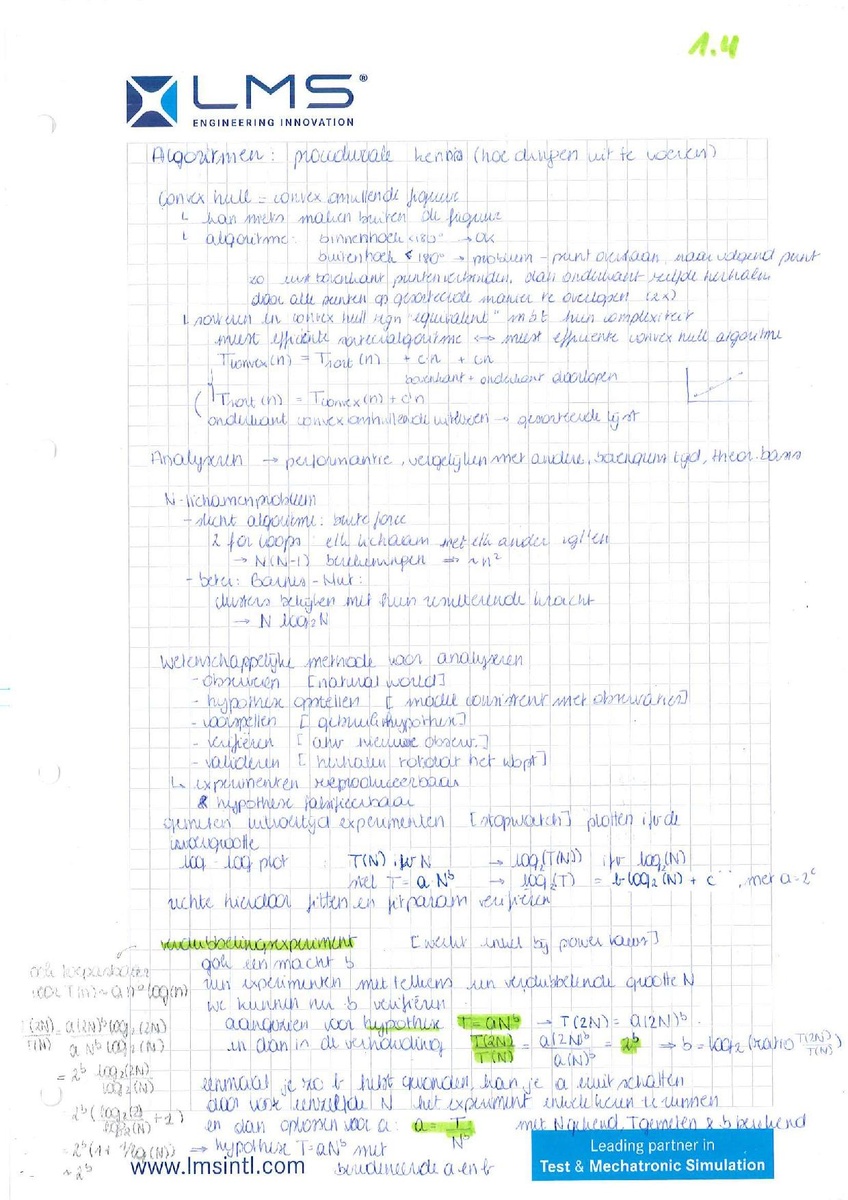 1.4
LMS®
ENGINEERING INNOVATION
Algoritmen: procedurale kennis (hoe dingen uit te voeren)
Convex hull = convex omullende figuur
↳ kan niets maken buiten de figuur
↳ algoritme: binnenhoek <180° → OK
buitenhoek < 180° → probleem - punt overslaan, naar volgend punt
zo eerst bovenkant punten verbinden, dan onderkant zelfde herhalen
door alle punten op gesorteerde manier te overlopen (2x)
↳ sorteren en convex hull zijn "equivalent" mbt hun complexiteit
meest efficiente sorteeralgoritme ↔ meest efficiente convex hull algoritme
Tconvex(n) = Tsort(n) + cn + cn
bovenkant + onderkant doorlopen
Tsort(n) = Tconvex(n) + cn
onderkant convex omhullende uitlezen → gesorteerde lijst
Analyseren → performantie, vergelijken met andere, begrijpen tijd, theor. basis
N-lichamenprobleem
- slecht algoritme: brute force
2 for loops: elk lichaam met elk ander vgl'en
→ N(N-1) berekeningen ⇒ ~n²
- beter: Barnes-Hut:
clusters bekijken met hun resulterende kracht
→ N log₂N
Wetenschappelijke methode voor analyseren
- observeren [natural world]
- hypothese opstellen [model consistent met observaties]
- voorspellen [gebruik hypothese]
- verifiëren [ahv nieuwe observ.]
- valideren [herhalen totdat het klopt]
↳ experimenten reproduceerbaar
& hypothese falsifieerbaar
gemeten uitvoertijd experimenten [stopwatch] plotten ifv de
invoergrootte
log-log plot: T(N) ifv N → log₂(T(N)) ifv log₂(N)
stel T = a N^b → log₂(T) = b log₂(N) + c, met a = 2^c
rechte hierdoor fitten en fitparam verifiëren
verdubbelingsexperiment [werkt enkel bij power laws]
gok een macht b
run experimenten met telkens een verdubbelende grootte N
we kunnen nu b verifiëren
aangezien voor hypothese T = aN^b → T(2N) = a(2N)^b
en dan in de verhouding T(2N)/T(N) = a(2N)^b/a(N)^b = 2^b ⇒ b = log₂(ratio T(2N)/T(N))
eenmaal je zo b hebt gevonden, kan je a eruit schatten
door voor eenzelfde N het experiment enkele keren te runnen
en dan oplossen voor a: a = T/N^b met N gekend, T gemeten & b berekend
→ hypothese T=aN^b met
berekende a en b
ook toepasbaar
voor T(n) ~ a n^b log(n)
T(2N)/T(N) = a(2N)^b log₂(2N)/a N^b log₂(N)
= 2^b log₂(2N)/log₂(N)
= 2^b (log₂(2)/log₂(N) + 1)
= 2^b (1 + 1/log(N))
~ 2^b
www.lmsintl.com
Leading partner in
Test & Mechatronic Simulation